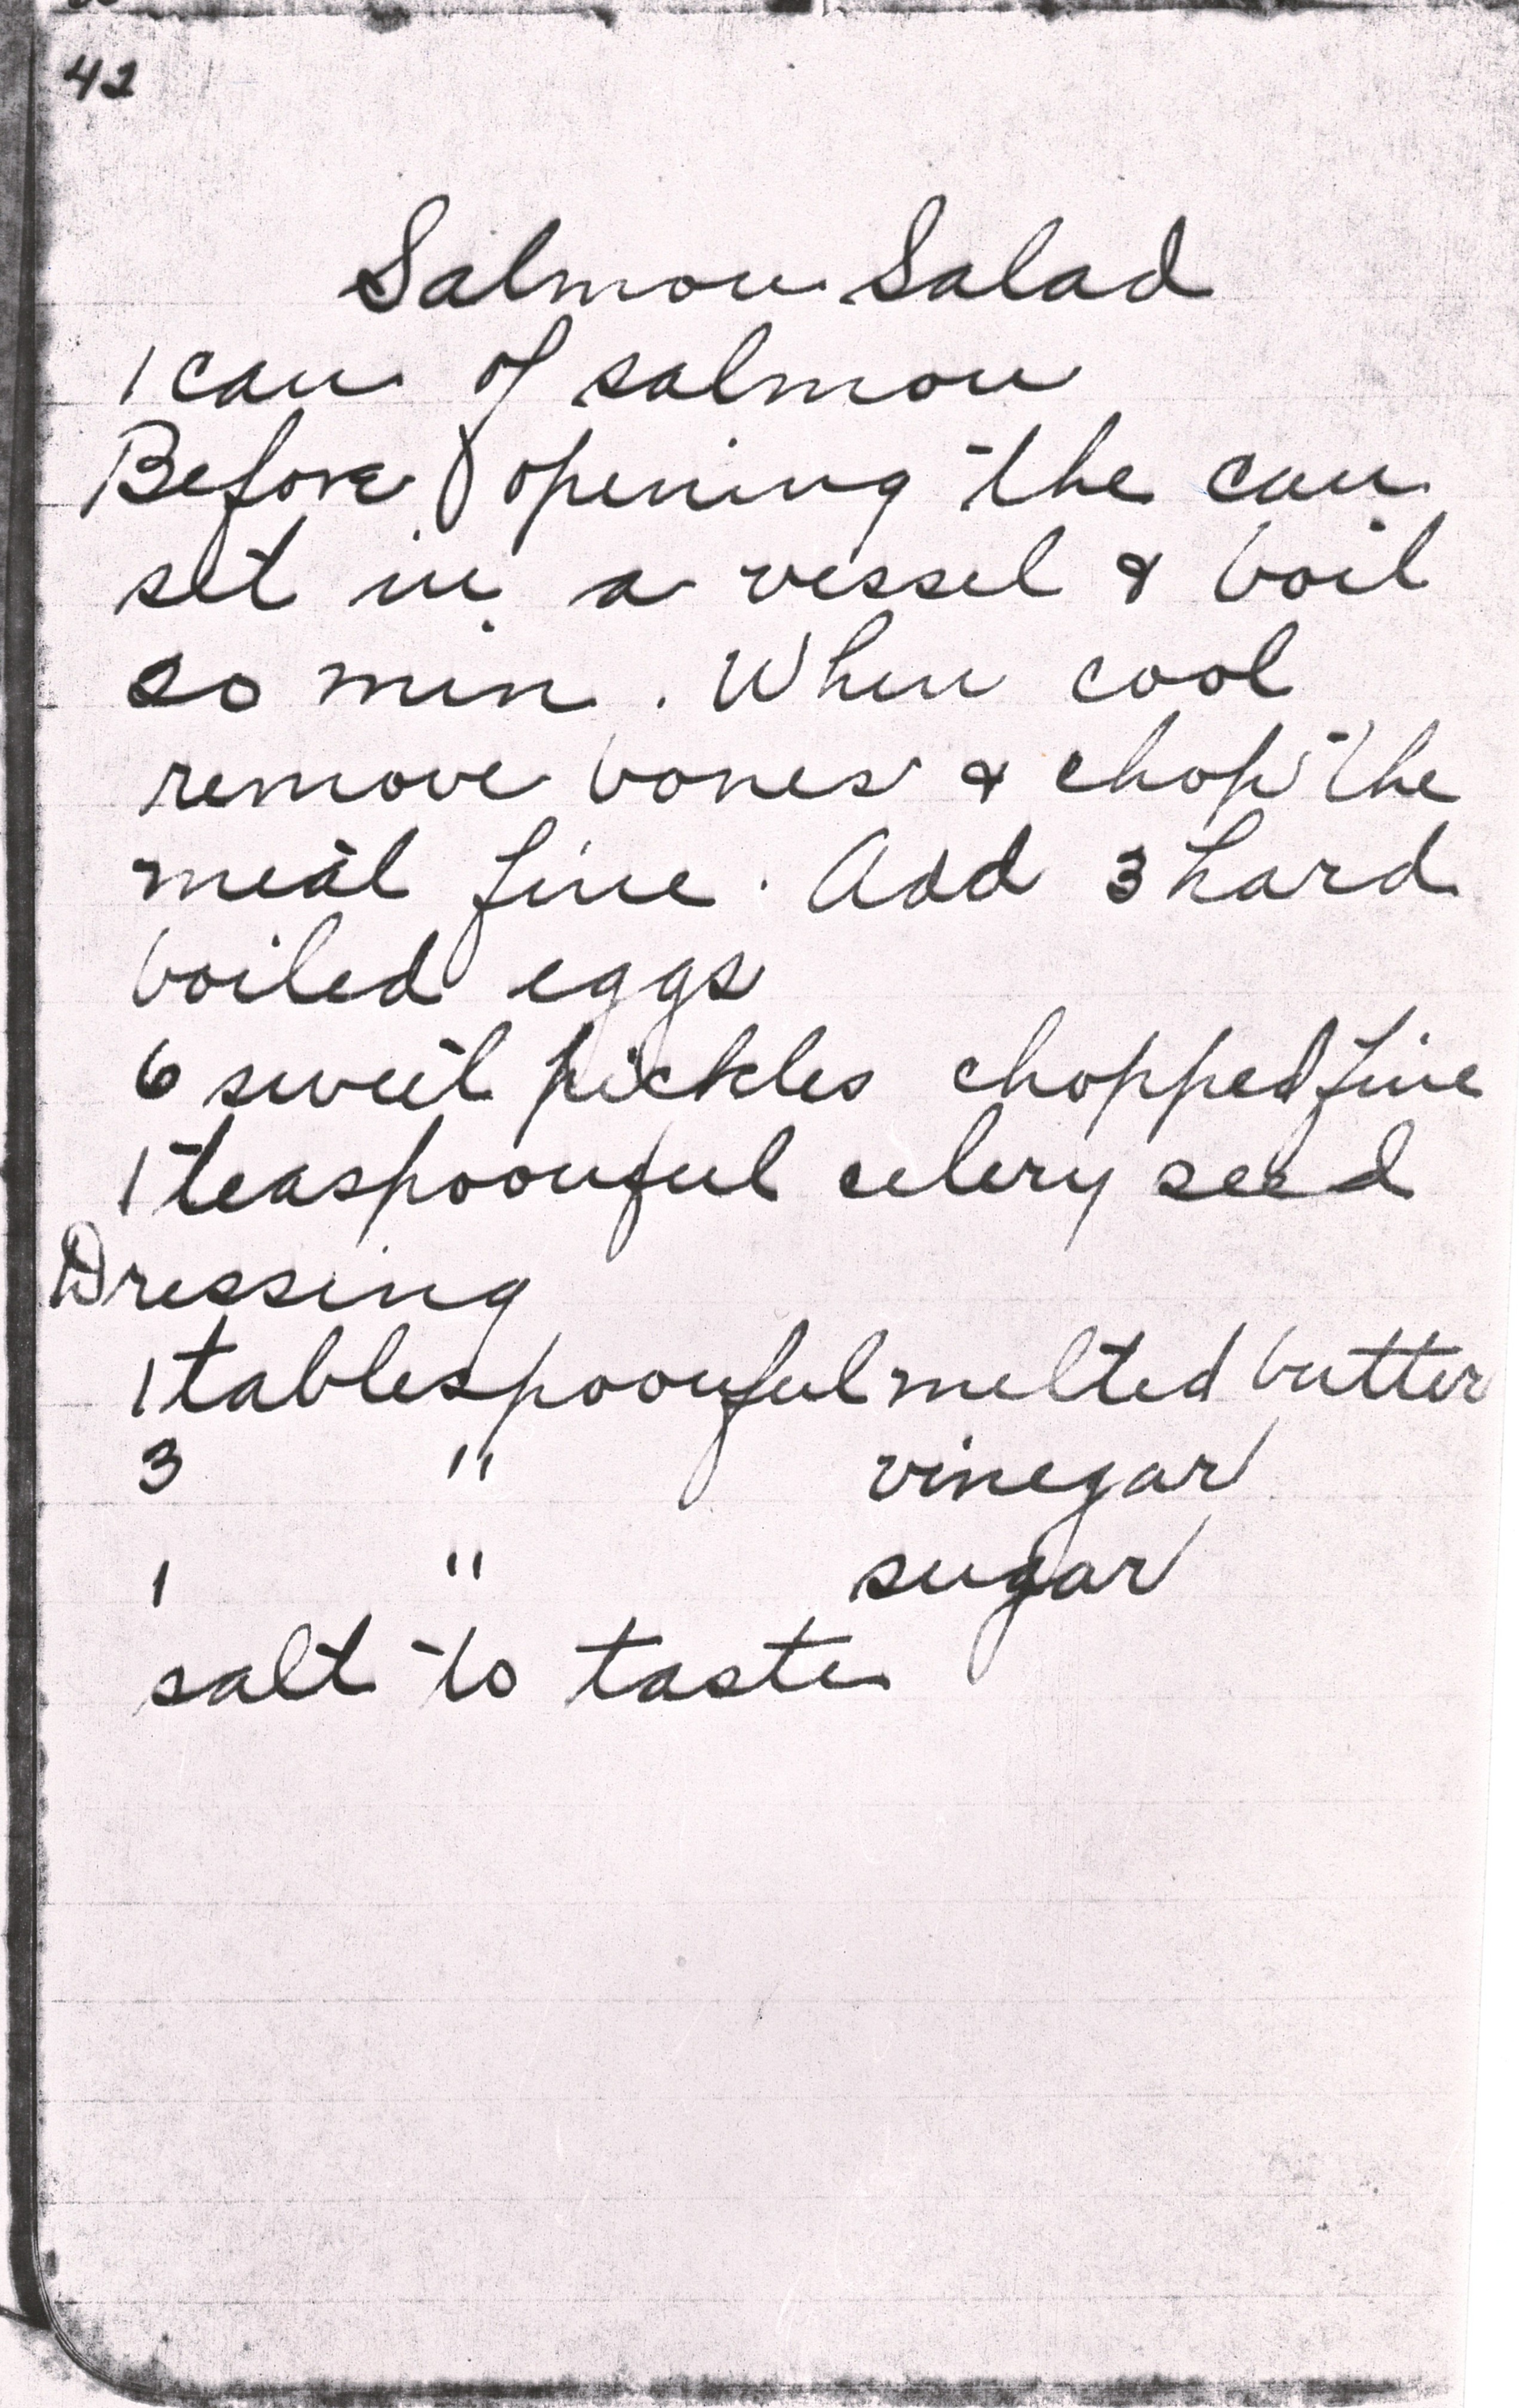 42
Salmon Salad
1 can of salmon
Before opening the can
set in a vessel & boil
20 min. When cool
remove bones & chop the
meat fine. Add 3 hard
boiled eggs
6 sweet pickles chopped fine
1 teaspoonful celery seed
Dressing
1 tablespoonful melted butter
3 " vinegar
1 " sugar
salt to taste